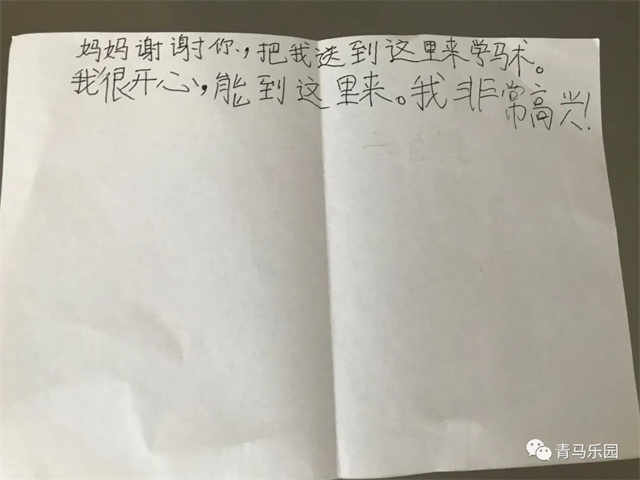 妈妈谢谢你，把我送到这里来学马术。
我很开心，能到这里来。我非常高兴！
青马乐园